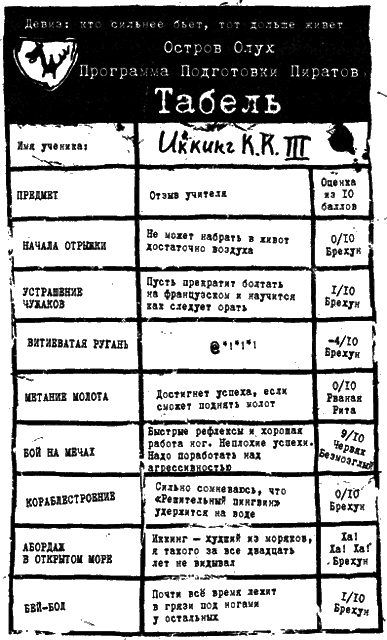 Девиз: кто сильнее бьет, тот дольше живет
Остров Олух
Программа Подготовки Пиратов
Табель
Имя ученика:
Иккинг К.К. III
ПРЕДМЕТ
Отзыв учителя
Оценка
из 10
баллов
НАЧАЛА ОТРЫЖКИ
Не может набрать в живот
достаточно воздуха
0/10
Брехун
УСТРАШЕНИЕ
ЧУЖАКОВ
Пусть прекратит болтать
на французском и научится
как следует орать
1/10
Брехун
ВИТИЕВАТАЯ РУГАНЬ
@*1*1*1
-4/10
Брехун
МЕТАНИЕ МОЛОТА
Достигнет успеха, если
сможет поднять молот
0/10
Рваная
Рита
БОЙ НА МЕЧАХ
Быстрые рефлексы и хорошая
работа ног. Неплохие успехи.
Надо поработать над
агрессивностью
9/10
Червяк
Безмозглый
КОРАБЛЕСТРОЕНИЕ
Сильно сомневаюсь, что
«Решительный пингвин»
удержится на воде
0/10
Брехун
АБОРДАЖ
В ОТКРЫТОМ МОРЕ
Иккинг – худший из моряков,
я такого за все двадцать
лет не видывал
Ха!
Ха! Ха!
Брехун
БЕЙ-БОЛ
Почти всё время лежит
в грязи под ногами
у остальных
1/10
Брехун